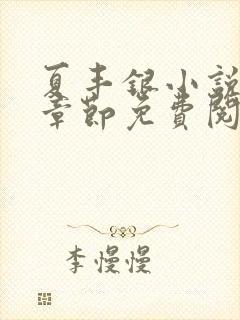 夏丰银小说
章节免费阅
李慢慢